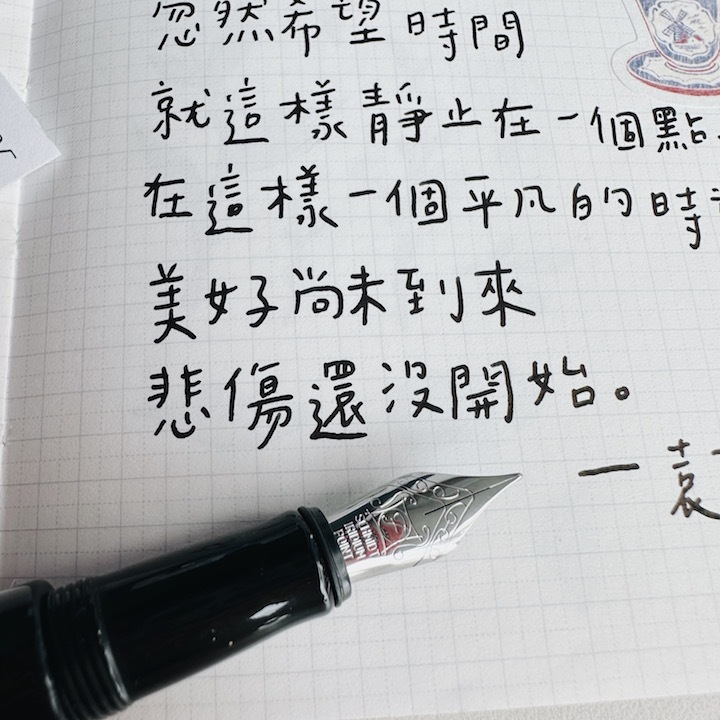 忽然希望時間
就這樣靜止在一個點
在這樣一個平凡的時
美好尚未到來
悲傷還沒開始。
一袁
SCHMIDT
IRIDIUM
POINT